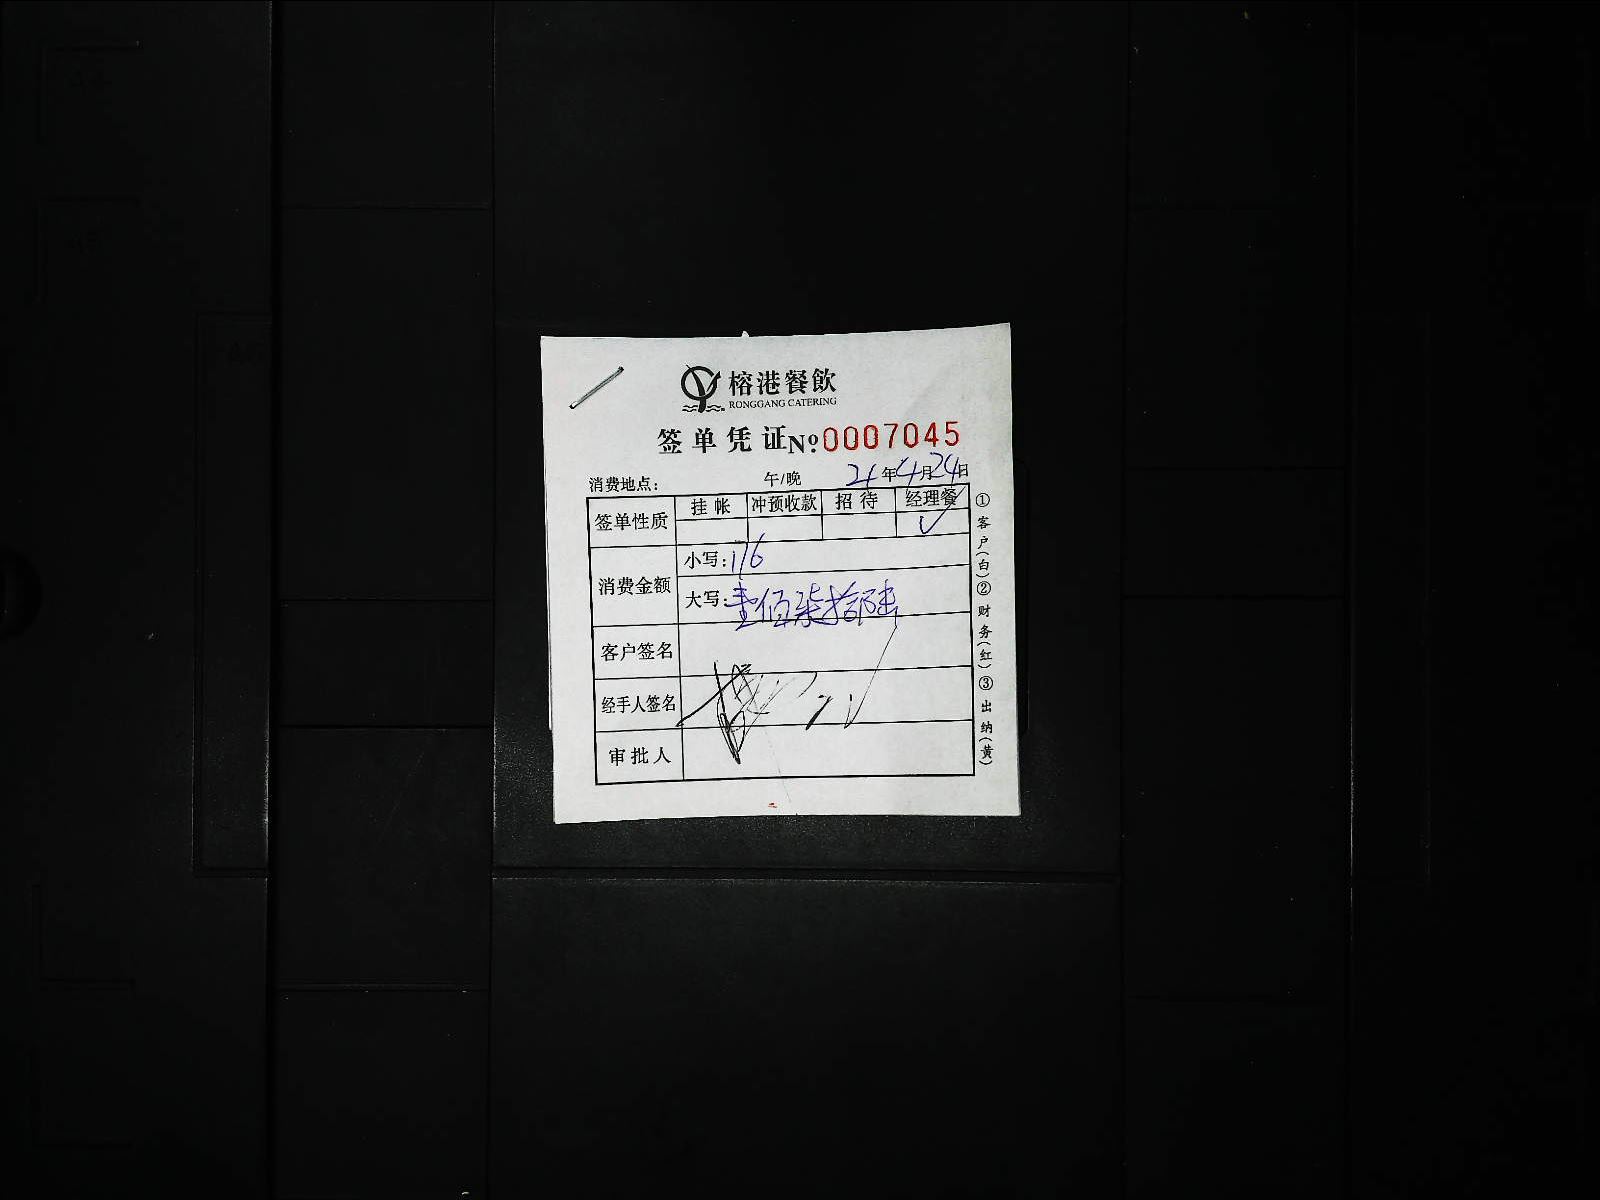 榕港餐飲
RONGGANG CATERING
签单凭证 №:0007045
消费地点: 午/晚 21年4月24日
签单性质 挂帐 冲预收款 招待 经理餐
✓
消费金额 小写:176
大写:壹佰柒拾陆
客户签名
经手人签名
审批人
①客户(白)②财务(红)③出纳(黄)